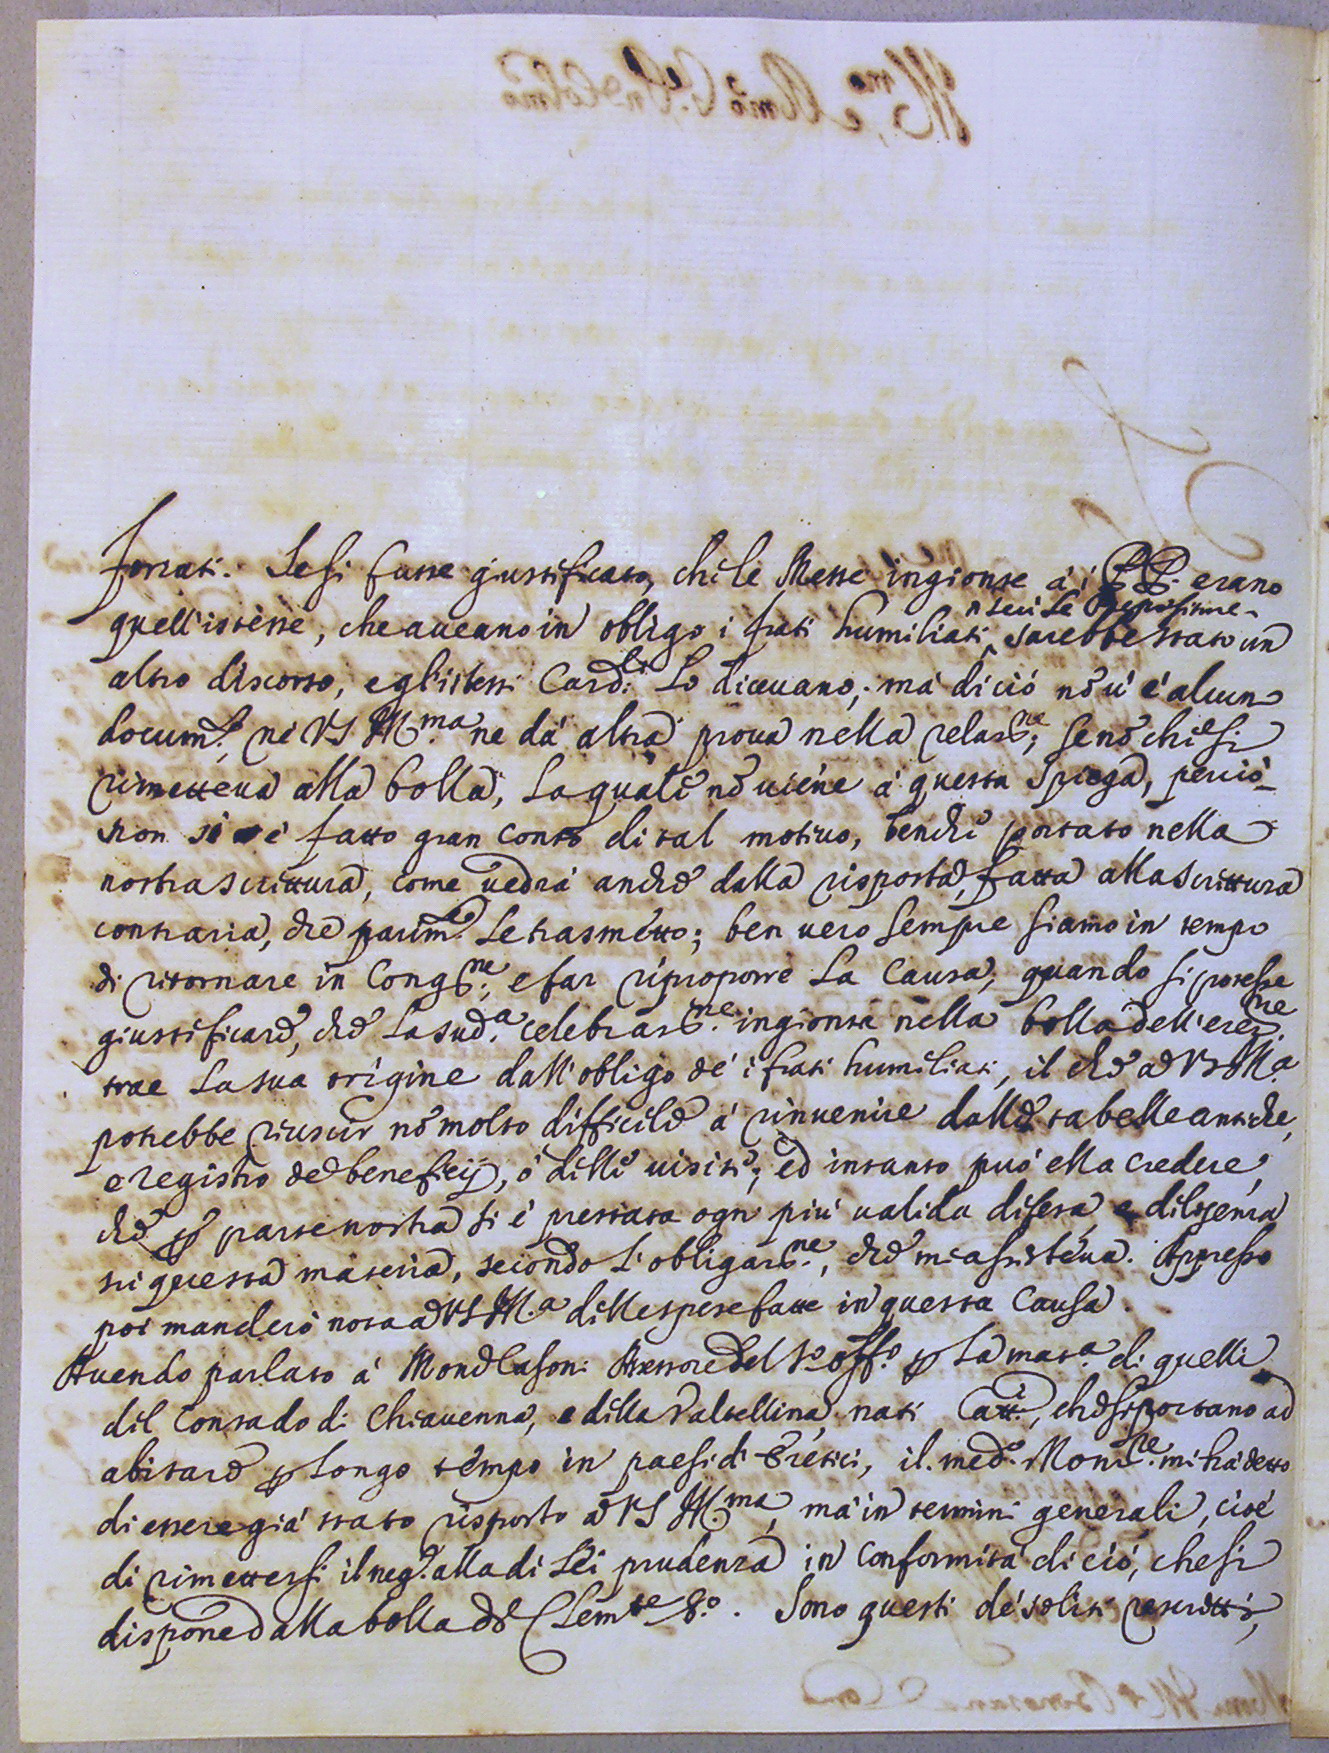 forzati. Se si fusse giustificato, che le Messe ingionte à i PP. erano
quell'istesse, che aveano in obligo i frati humiliati, sarebbe stato un
altro discorso, e gl'istessi Card.li Lo dicevano; mà di ciò nõ u'è alcun
docum.to, nè VS Ill.ma ne dà altra proua nella relaz.ne; se nõ che si
rimetteua alla bolla, La quale nõ uiene à questa spiega, perciò
non si è fatto gran conto di tal motiuo, benche portato nella
nostra scrittura, come uedrà anche dalla risposta, fatta alla scrittura
contraria, che parim.te Le trasmetto; ben uero sempre siamo in tempo
di ritornare in Cong.ne, e far riproporre La Causa, quando si potesse
giustificare, che La sud.a celebraz.ne ingionta nella bolla dell'erez.ne
trae La sua origine dall'obligo de i frati humiliati, il che à VS Ill.a
potrebbe riuscir nõ molto difficile à rinuenire dalle tabelle antiche,
e registro de beneficij, ò delle uisite; ed intanto può ella credere,
che p parte nostra si è prestata ogni più ualida difesa, e diligenza
in questa materia, secondo L'obligaz.ne, che mi assisteua. Appresso
poi manderò nota à VS Ill.a delle spese fatte in questa Causa.
Auendo parlato à Mons.r Casoni Assessore del S.o Off.o p La mat.a di quelli
del Contado di Chiauenna, e della Valtellina nati Catt.i, che si portano ad
abitare p Longo tempo in paesi di Eretici, il med.o Mons.re mi hà detto
di essere già stato risposto à VS Ill.ma, mà in termini generali, cioè
di rimettersi il neg.o alla di Lei prudenza in conformità di ciò, che si
dispone dalla bolla di Clem.te 8.o. Sono questi de' soliti rescritti,